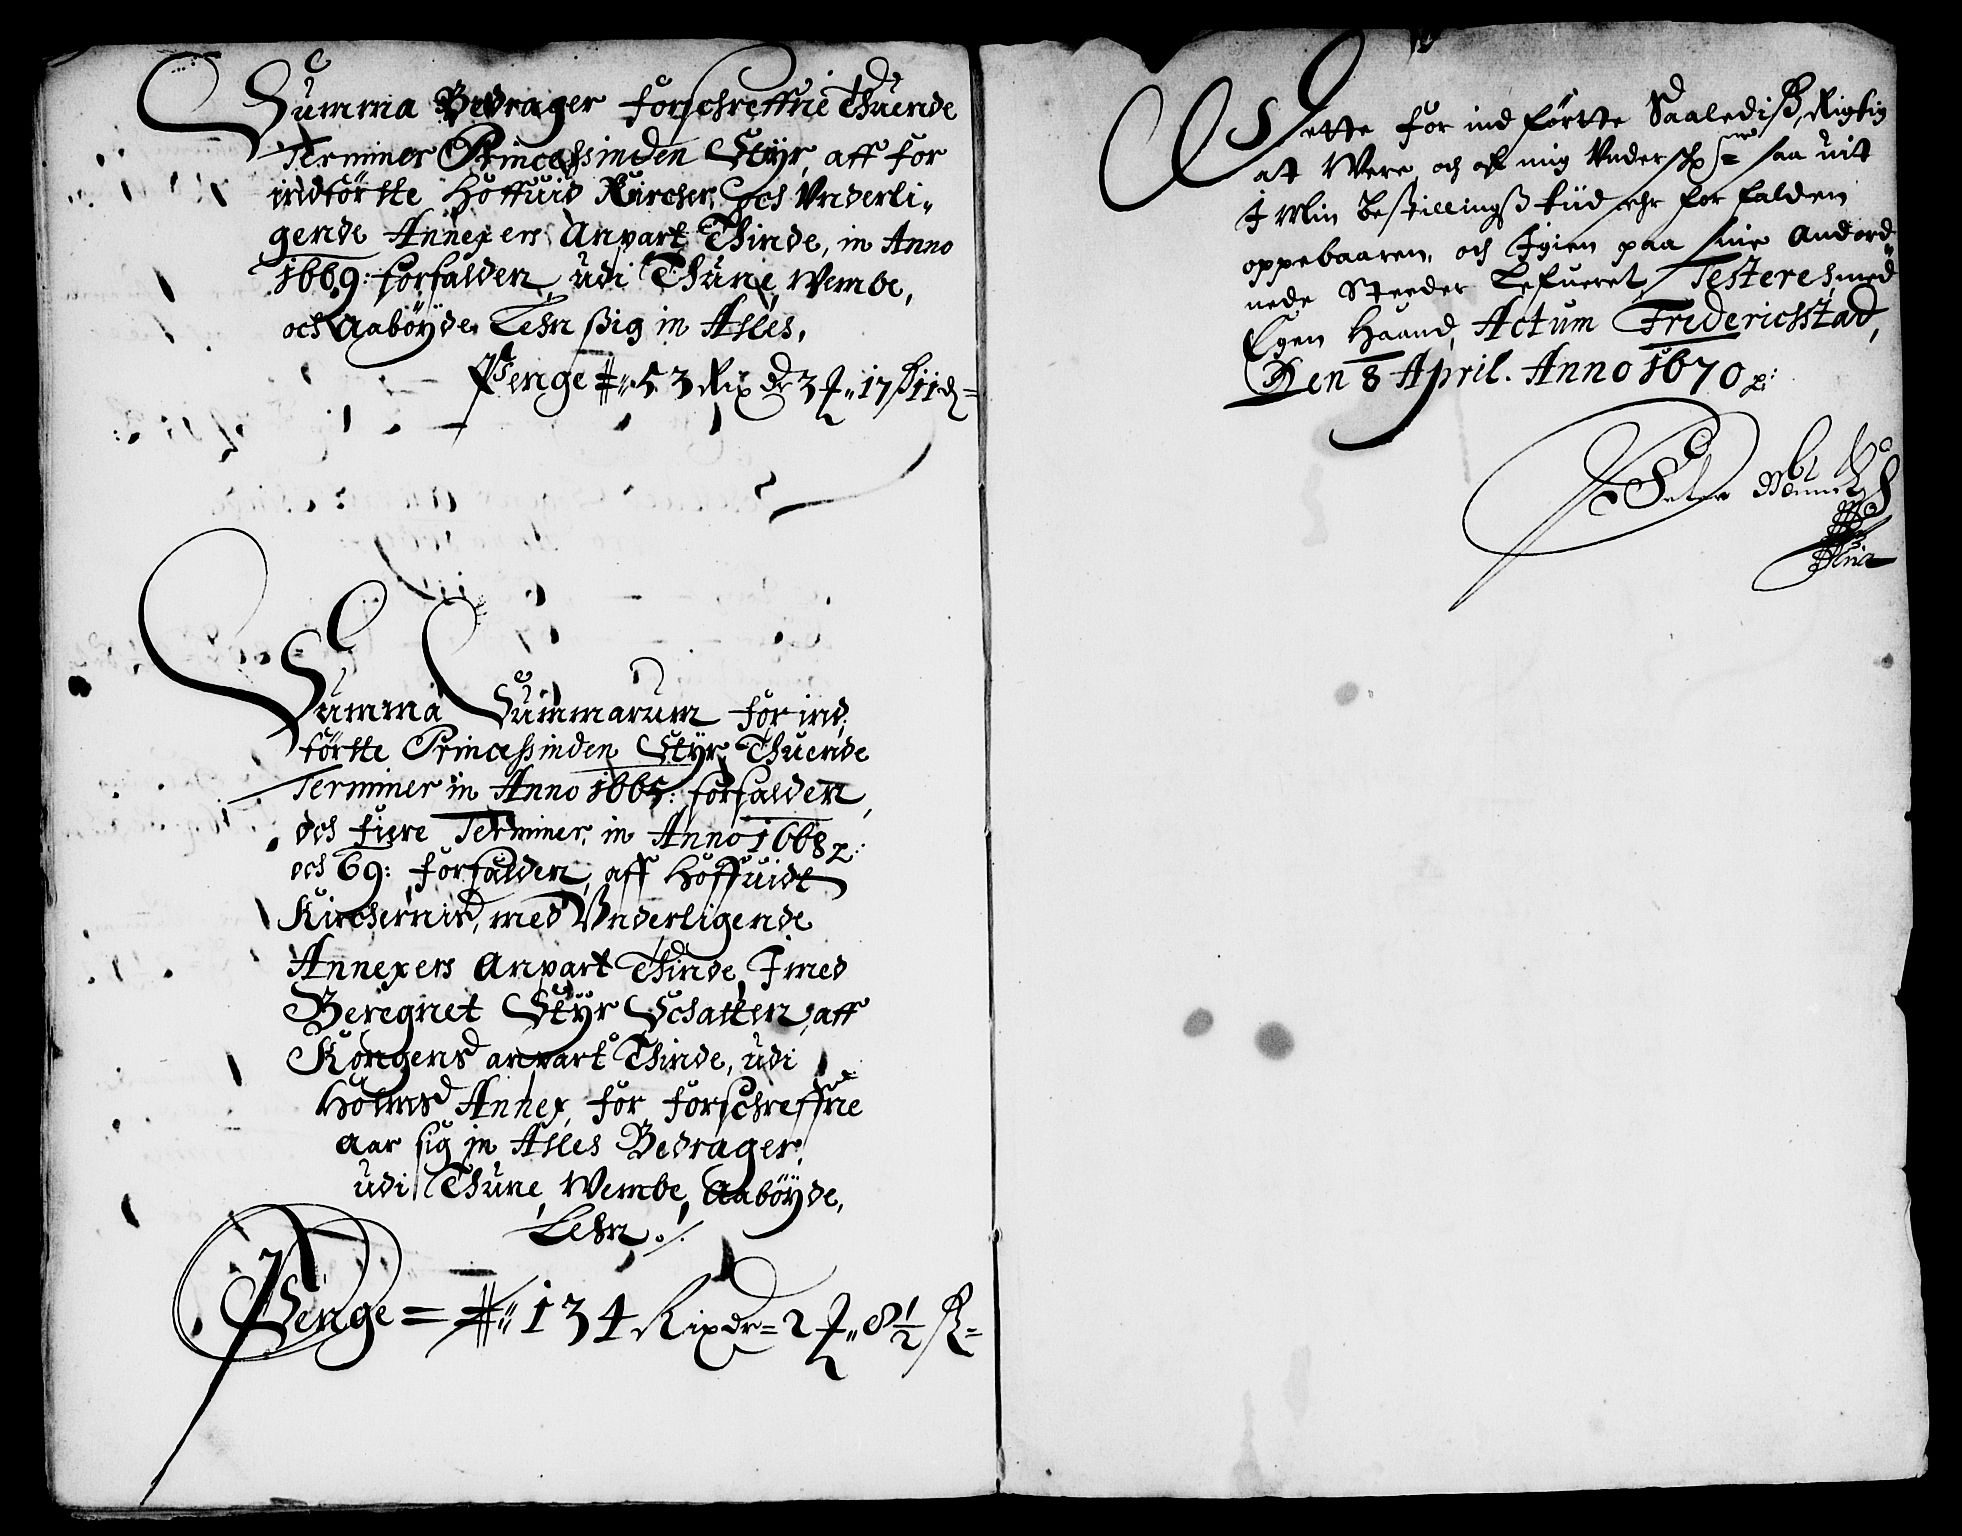 Summa Bedrager forschreffne Thuende
Terminer Princessinden Styr, aff for
indförtte Höffuid Kircher, och Vnderli„
gende Annexers Anpart Thinde, in Anno
1669: forfalden, udi Thune, Wembe,
och Aaböyde Lehn sig in Alles,
Penge # 53 Rixdr 3 „ 17 ß 11 d=
Summa Summarum for ind,
förtte Princessinden Styr Thuende
Terminer in Anno 1665: forfalden,
och fiere Terminer, in Anno 1668
och 69: forfalden, aff Höffuidt
Kirchernis, med Vnderligende
Annexers Anpart Thinde, Jmed
Beregnet Styr Schatten, aff
Kongens anpart Thinde, udi
Holms Annex, for forschreffne
Aar sig in Alles Bedrager,
udi Thune, Wembe, Aaböyde,
Lehn ./.
Penge = # 134 Rixdr= 2 „ 8½ ß=
Dette for ind förtte Saalediß, Rigtig
at Were, och aff mig Vndersch: saa uit
J Min Bestillingß tiid ehr for falden
oppebaaren, och Jgien paa sine Andord
nede Steeder Lefueret, Testeres, med
Egen Haand, Actum Friderichstad,
Den 8 April. Anno 1670